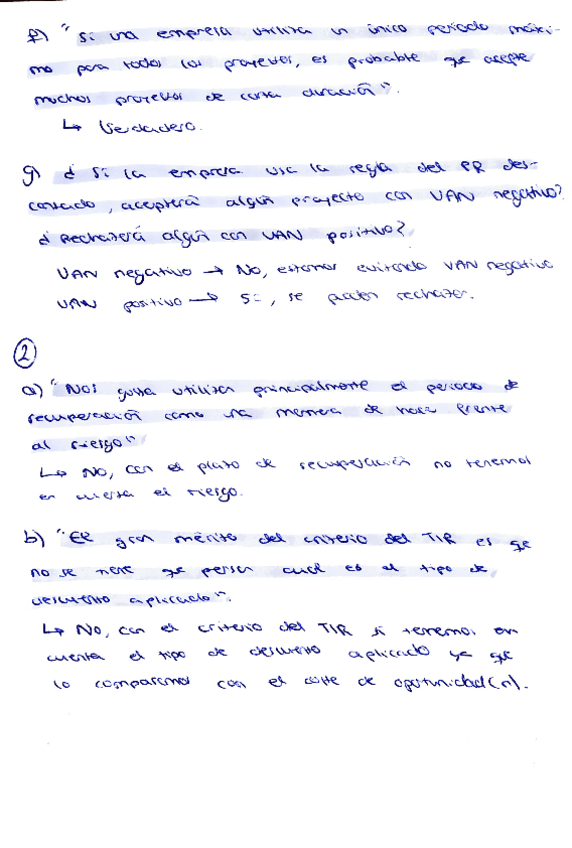 f) "Si una empresa utiliza un único periodo máxi-
mo para todos los proyectos, es probable que acepte
muchos proyectos de corta duración".
↳ Verdadero.
g) ¿Si la empresa usa la regla del PR des-
contado, aceptará algún proyecto con VAN negativo?
¿Rechazará algún con VAN positivo?
VAN negativo → No, estamos evitando VAN negativo
VAN positivo → Sí, se pueden rechazar.
②
a) "Nos gusta utilizar principalmente el periodo de
recuperación como una manera de hacer frente
al riesgo"
↳ No, con el plazo de recuperación no tenemos
en cuenta el riesgo.
b) "El gran mérito del criterio del TIR es que
no se tiene que pensar cual es el tipo de
descuento aplicado".
↳ No, con el criterio del TIR si tenemos en
cuenta el tipo de descuento aplicado ya que
lo comparamos con el coste de oportunidad (r).